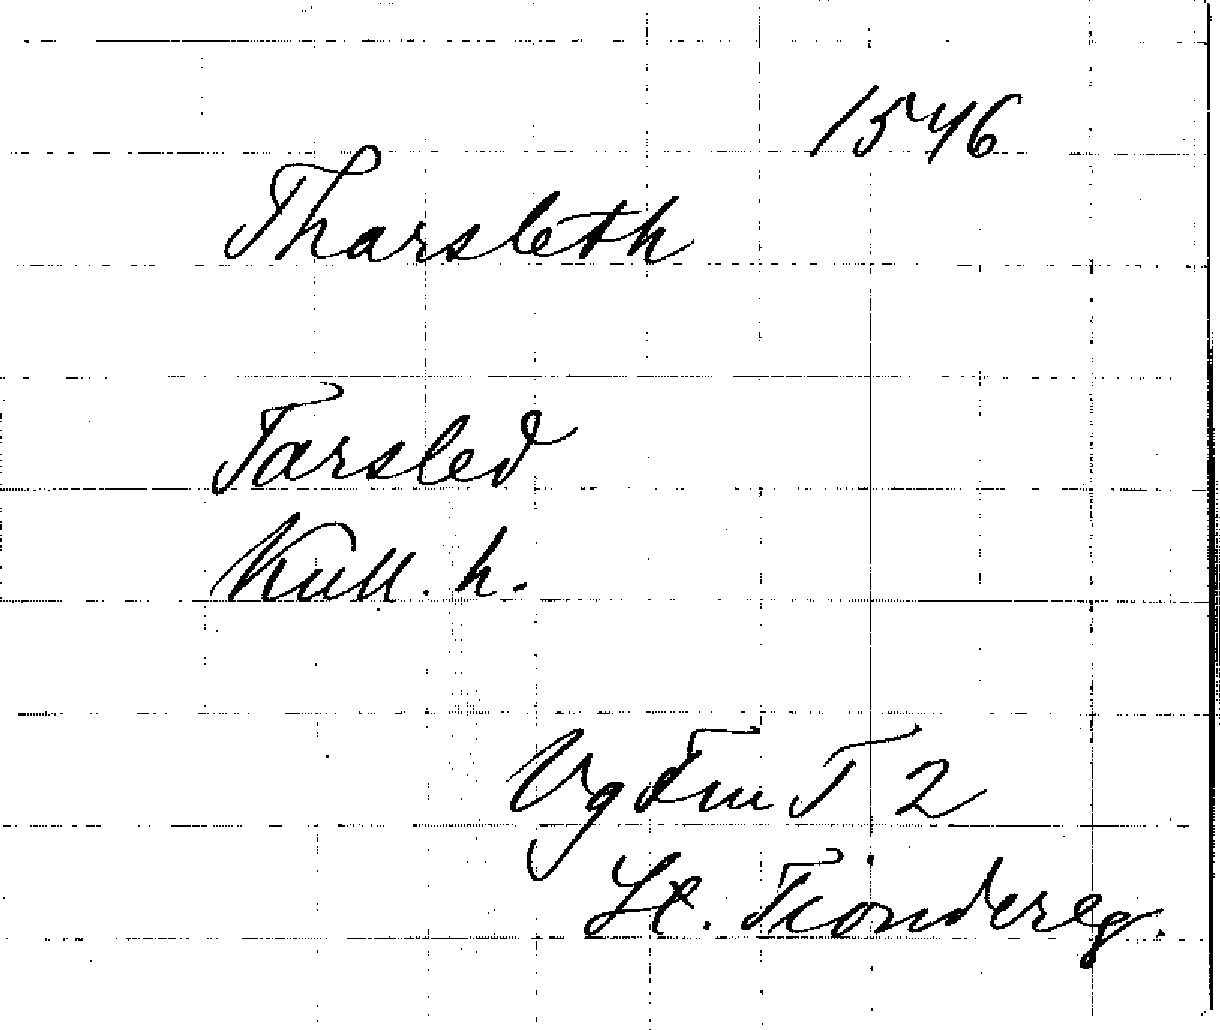 1546
Tharsleth
Tarsled
Kull. h.
Vg Tiu T 2
St. Tiondereg.